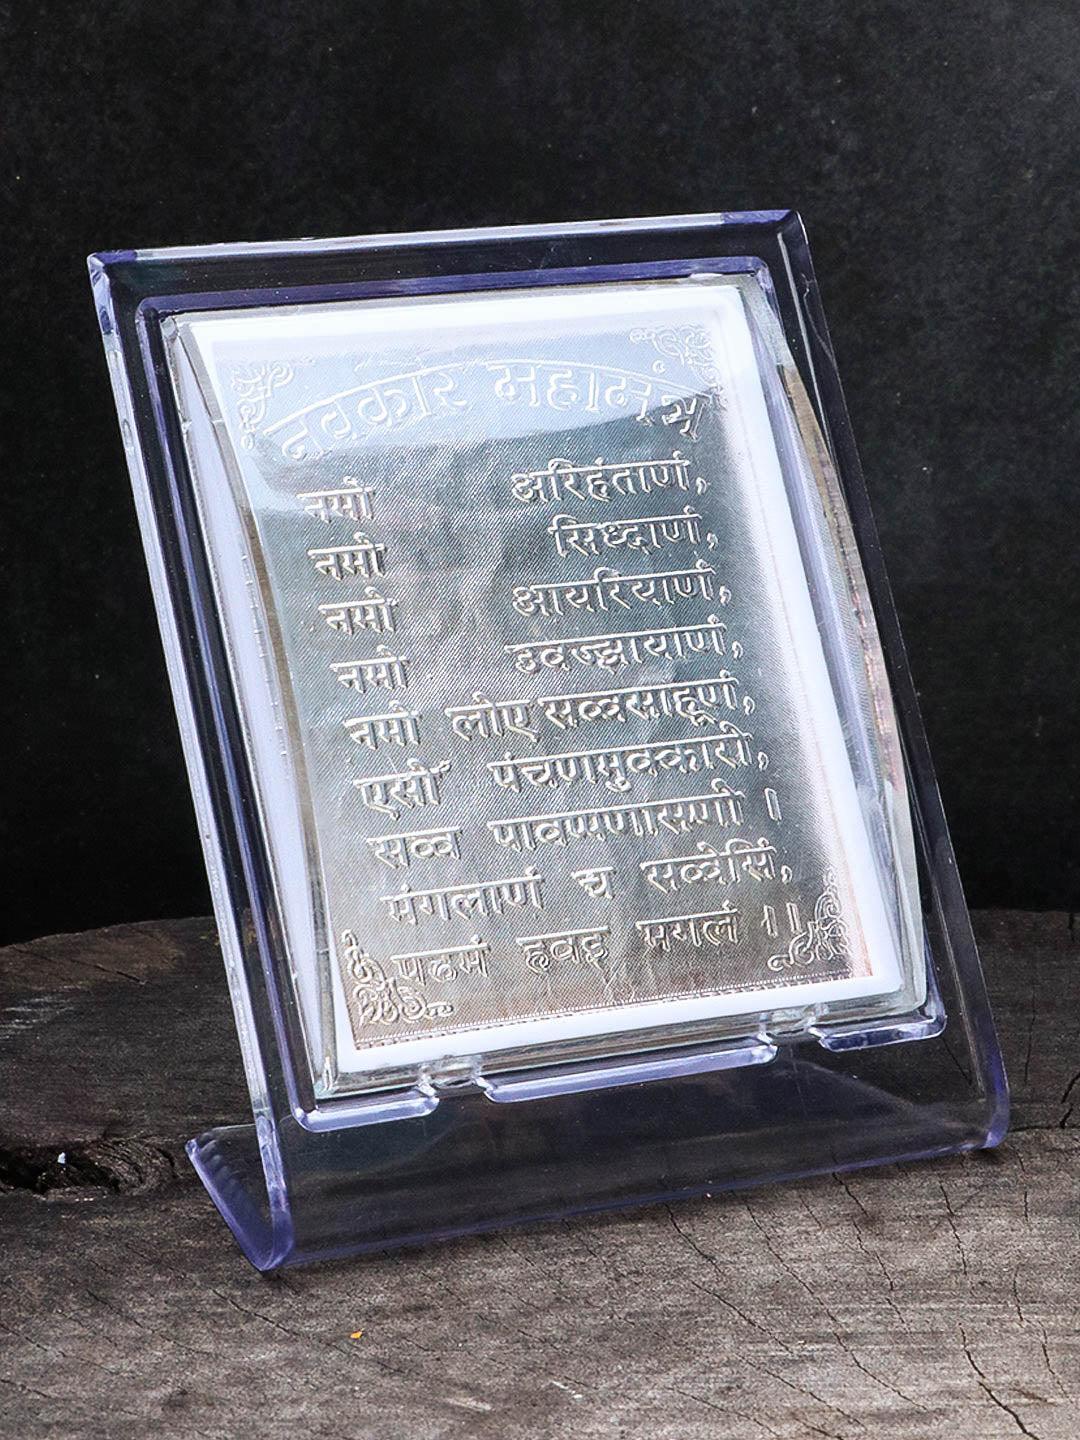 नवकार महामंत्र
नमो अरिहंताणं,
नमो सिध्दाणं,
नमो आयरियाणं,
नमो उवज्झायाणं,
नमो लोए सव्वसाहूणं,
एसो पंचणमुक्कारो,
सव्व पावप्पणासणो ।
मंगलाणं च सव्वेसिं,
पढमं हवइ मगलं ।।